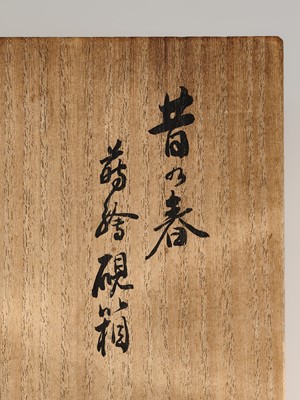 昔の春
蒔繪硯箱